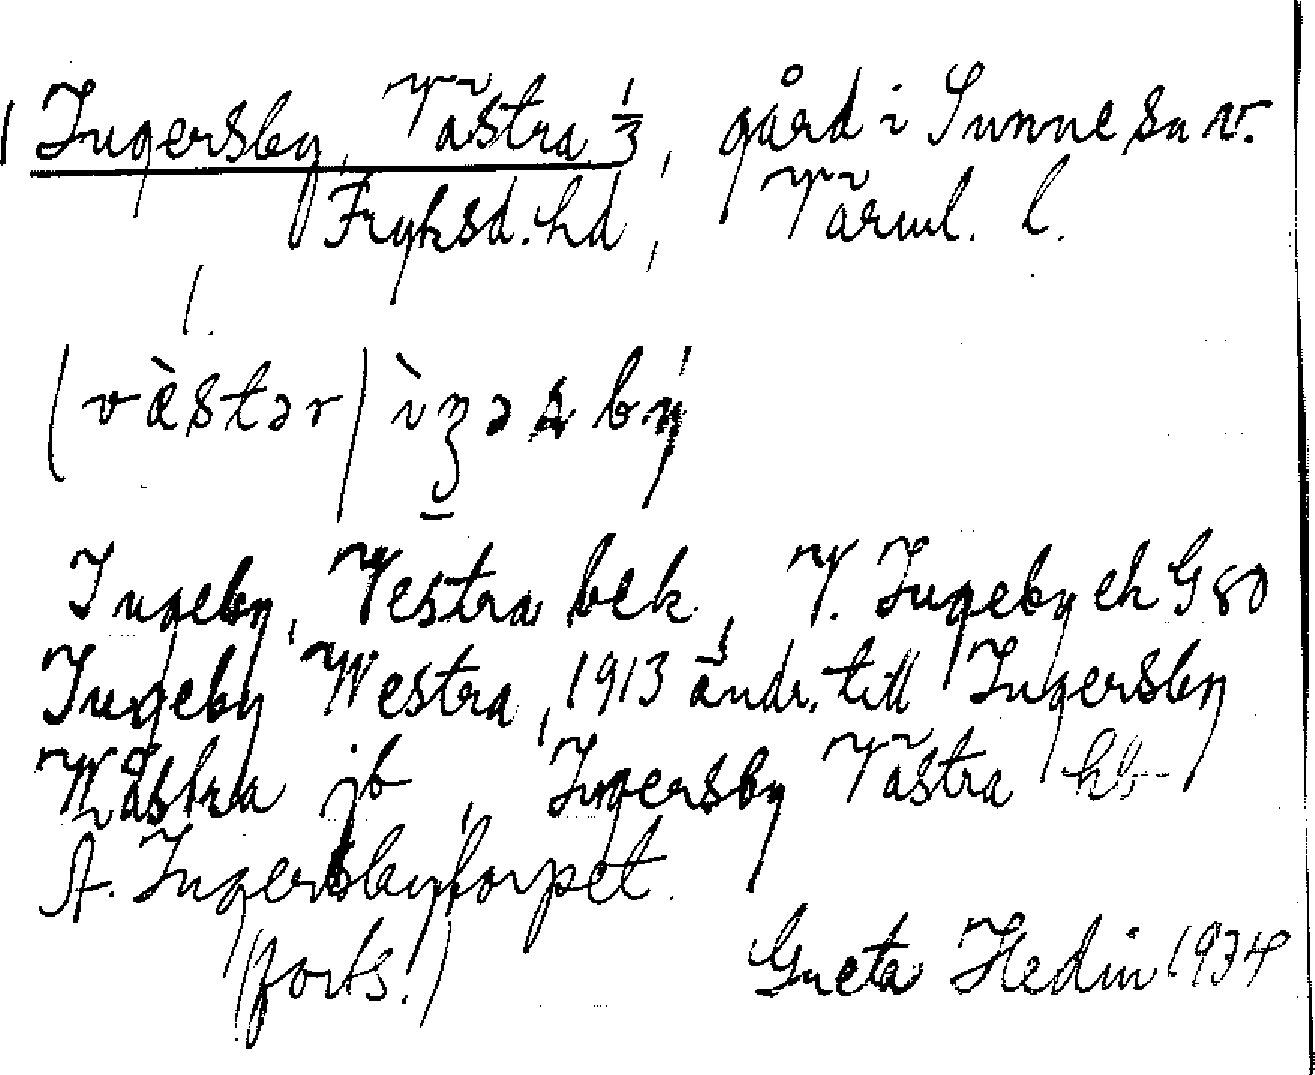 Ingersby, Västra 1/3, gård i Sunne sn v.
Fryksd. hd, Värml. l.
(væ̀stər) ìŋəṣbý
Ingeby, Vestra bek, V. Ingeby ek G 80
Ingeby Westra, 1913 ändr. till Ingersby
Wästra jb, Ingersby Västra hb
A. Ingersbytorpet.
(forts.) Greta Hedin 1934